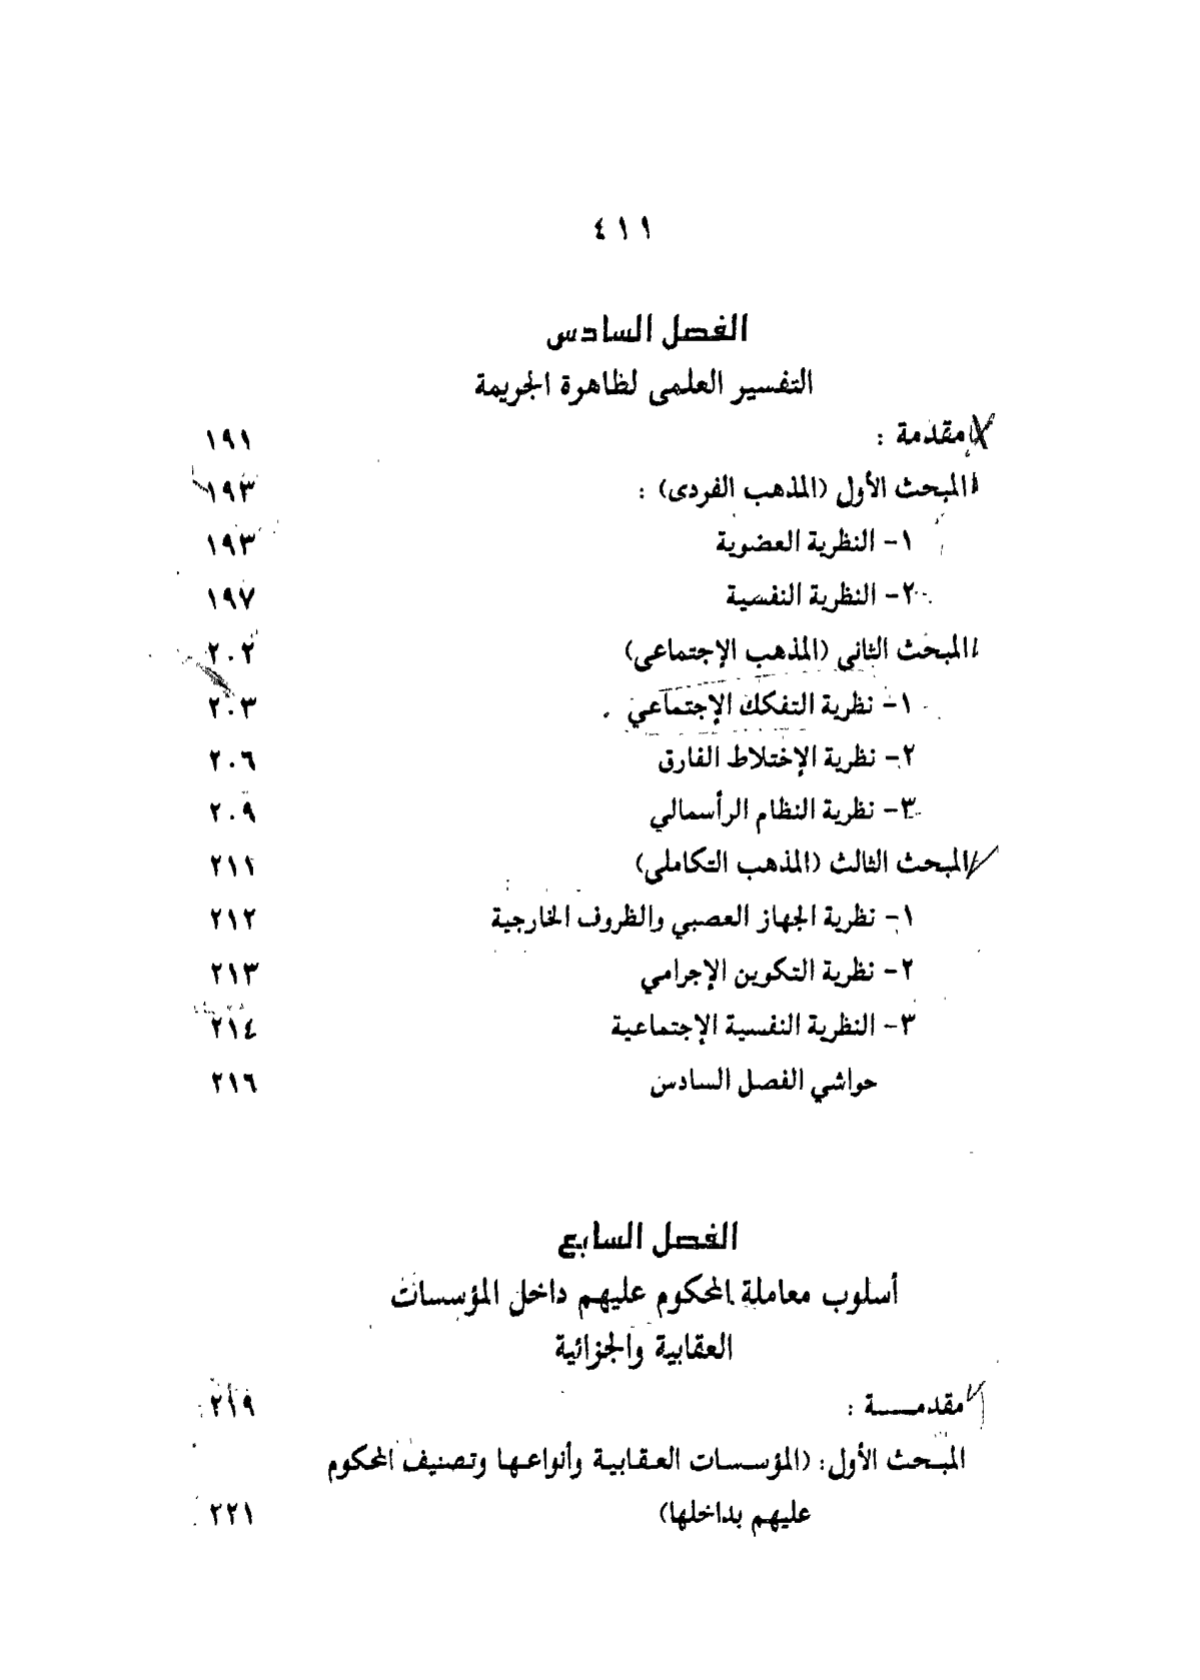 ٤١١
الفصل السادس
التفسير العلمى لظاهرة الجريمة
مقدمة : ١٩١
المبحث الأول (المذهب الفردى) : ١٩٣
١- النظرية العضوية ١٩٣
٢- النظرية النفسية ١٩٧
المبحث الثانى (المذهب الإجتماعى) ٢٠٢
١- نظرية التفكك الإجتماعي ٢٠٣
٢- نظرية الإختلاط الفارق ٢٠٦
٣- نظرية النظام الرأسمالي ٢٠٩
المبحث الثالث (المذهب التكاملى) ٢١١
١- نظرية الجهاز العصبي والظروف الخارجية ٢١٢
٢- نظرية التكوين الإجرامي ٢١٣
٣- النظرية النفسية الإجتماعية ٢١٤
حواشي الفصل السادس ٢١٦
الفصل السابع
أسلوب معاملة المحكوم عليهم داخل المؤسسات
العقابية والجزائية
مقدمـــة : ٢١٩
المبحث الأول: (المؤسسات العقابية وأنواعها وتصنيف المحكوم
عليهم بداخلها) ٢٢١